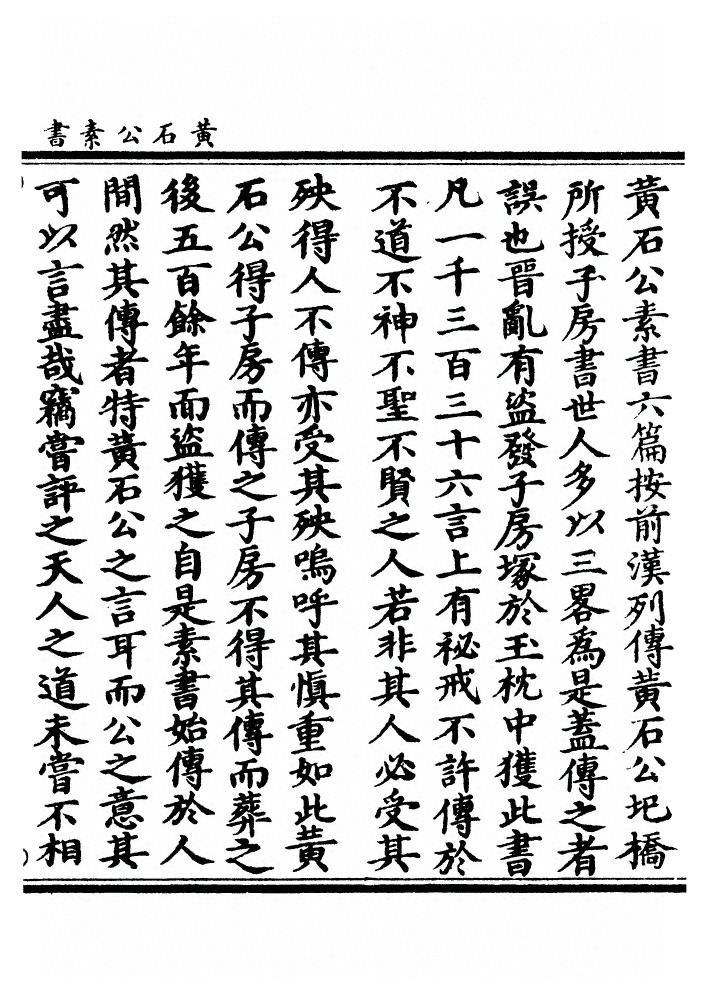 黃石公素書
黃石公素書六篇按前漢列傳黃石公圯橋
所授子房書世人多以三畧爲是蓋傳之者
誤也晉亂有盜發子房塚於玉枕中獲此書
凡一千三百三十六言上有祕戒不許傳於
不道不神不聖不賢之人若非其人必受其
殃得人不傳亦受其殃嗚呼其慎重如此黃
石公得子房而傳之子房不得其傳而葬之
後五百餘年而盜獲之自是素書始傳於人
間然其傳者特黃石公之言耳而公之意其
可以言盡哉竊嘗評之天人之道未嘗不相